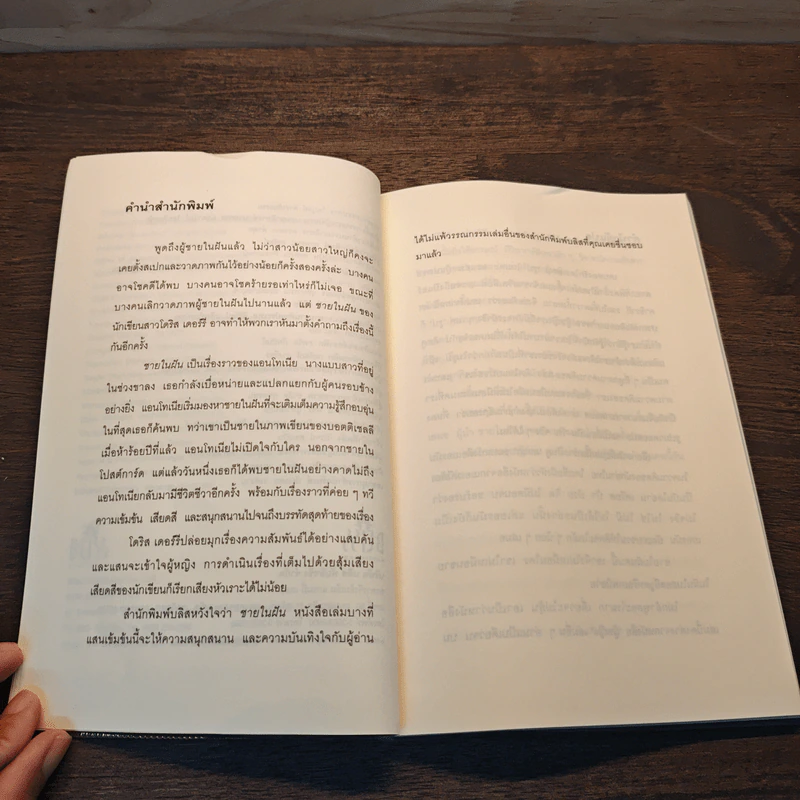 คำนำสำนักพิมพ์
พูดถึงผู้ชายในฝันแล้ว ไม่ว่าสาวน้อยสาวใหญ่ก็คงจะ
เคยตั้งสเปกและวาดภาพกันไว้อย่างน้อยก็ครั้งสองครั้งล่ะ บางคน
อาจโชคดีได้พบ บางคนอาจโชคร้ายรอเท่าไหร่ก็ไม่เจอ ขณะที่
บางคนเลิกวาดภาพผู้ชายในฝันไปนานแล้ว แต่ ชายในฝัน ของ
นักเขียนสาวดอริส เดอร์รี อาจทำให้พวกเราหันมาตั้งคำถามถึงเรื่องนี้
กันอีกครั้ง
ชายในฝัน เป็นเรื่องราวของแอนโทเนีย นางแบบสาวที่อยู่
ในช่วงขาลง เธอกำลังเบื่อหน่ายและแปลกแยกกับผู้คนรอบข้าง
อย่างยิ่ง แอนโทเนียเริ่มมองหาชายในฝันที่จะเติมเต็มความรู้สึกอบอุ่น
ในที่สุดเธอก็ค้นพบ ทว่าเขาเป็นชายในภาพเขียนของบอตติเชลลี
เมื่อห้าร้อยปีที่แล้ว แอนโทเนียไม่เปิดใจกับใคร นอกจากชายใน
โปสต์การ์ด แต่แล้ววันหนึ่งเธอก็ได้พบชายในฝันอย่างคาดไม่ถึง
แอนโทเนียกลับมามีชีวิตชีวาอีกครั้ง พร้อมกับเรื่องราวที่ค่อย ๆ ทวี
ความเข้มข้น เสียดสี และสนุกสนานไปจนถึงบรรทัดสุดท้ายของเรื่อง
ดอริส เดอร์รีปล่อยมุกเรื่องความสัมพันธ์ได้อย่างแสบคัน
และแสนจะเข้าใจผู้หญิง การดำเนินเรื่องที่เต็มไปด้วยสุ้มเสียง
เสียดสีของนักเขียนก็เรียกเสียงหัวเราะได้ไม่น้อย
สำนักพิมพ์บลิสหวังใจว่า ชายในฝัน หนังสือเล่มบางที่
แสนเข้มข้นนี้จะให้ความสนุกสนาน และความบันเทิงใจกับผู้อ่าน
ได้ไม่แพ้วรรณกรรมเล่มอื่นของสำนักพิมพ์บลิสที่คุณเคยชื่นชอบ
มาแล้ว